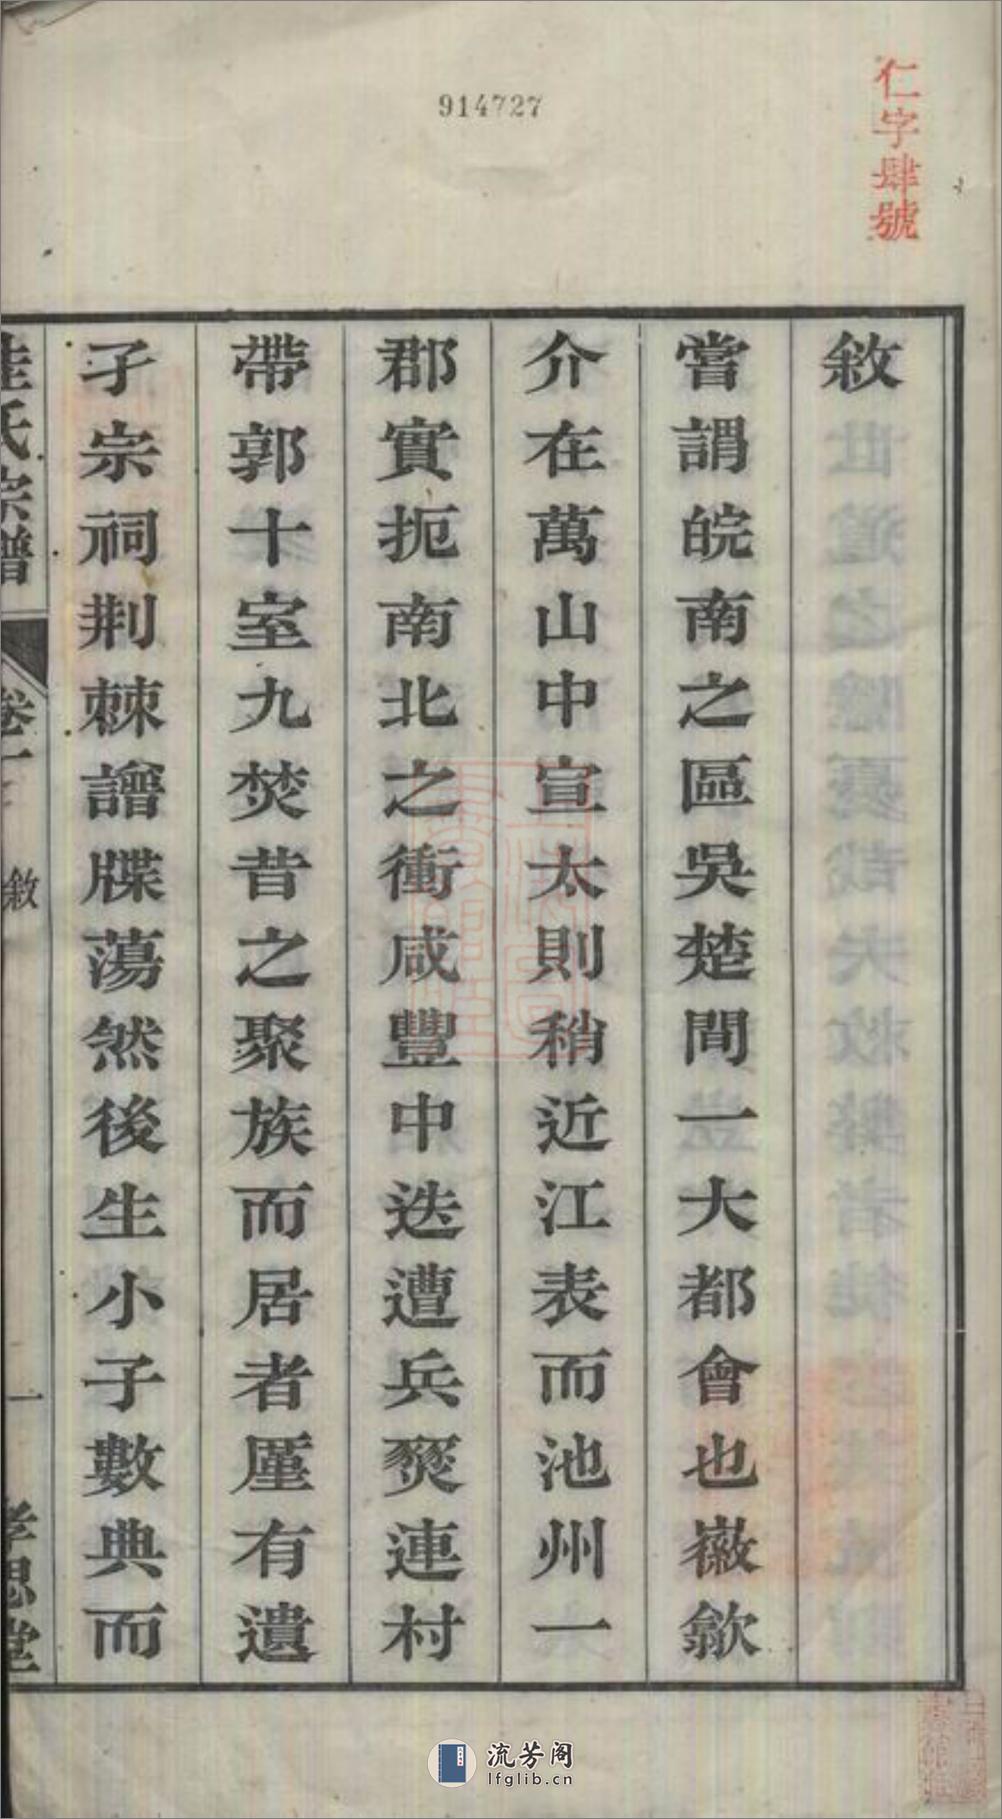 914727
仁字肆號
敘
嘗謂皖南之區吳楚間一大都會也徽歙
介在萬山中宣太則稍近江表而池州一
郡實扼南北之衝咸豐中迭遭兵燹連村
帶郭十室九焚昔之聚族而居者厪有遺
孑宗祠荆棘譜牒蕩然後生小子數典而
桂氏宗譜
卷一
敘
一
孝思堂
流芳阁
lfglib.cn